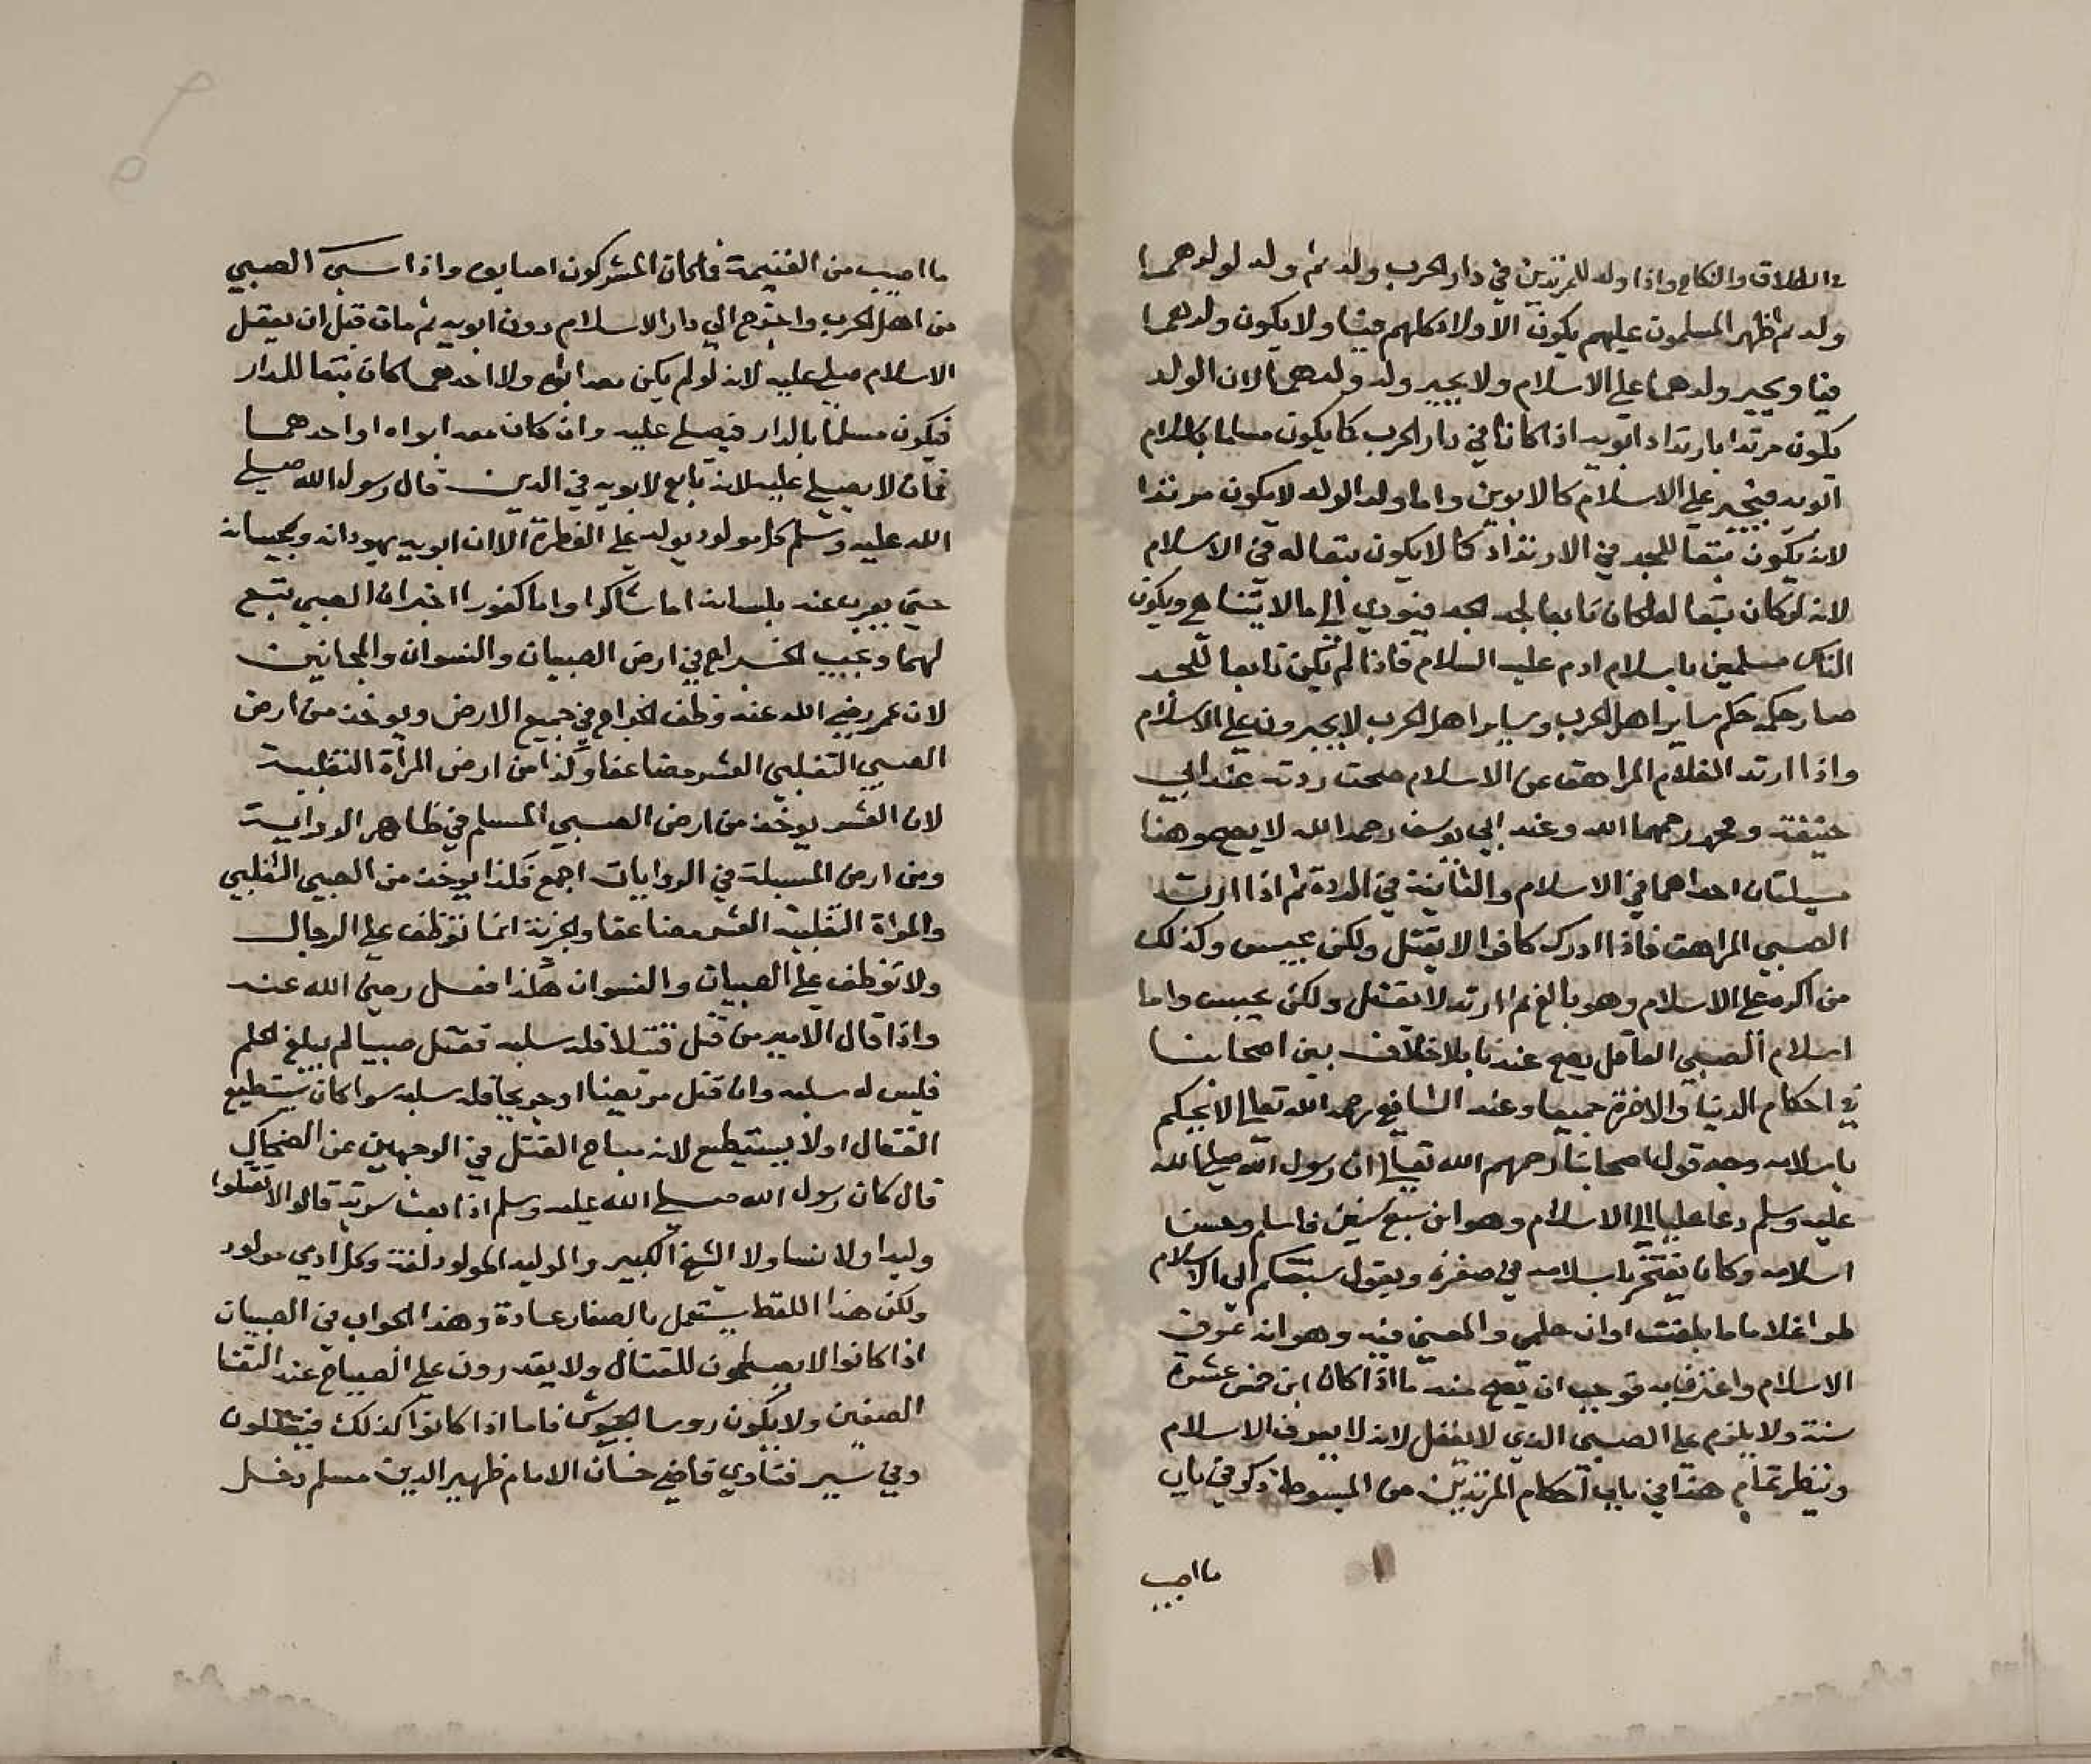 في الطلاق والنكاح واذا ولد للمرتدين في دار الحرب ولد ثم ولد لولدهما
ولد ثم ظهر المسلمون عليهم يكون الاولاد كلهم فيئا ولا يكون ولدهما
فيئا ويجبر ولدهما على الاسلام ولا يجبر ولد ولدهما لان الولد
يكون مرتدا بارتداد ابويه اذا كانا في دار الحرب كما يكون مسلما باسلام
ابويه فيجبر على الاسلام كالابوين واما ولد الولد لا يكون مرتدا
لانه يكون تبعا للجد في الارتداد كما لا يكون تبعا له في الاسلام
لانه لو كان تبعا له لكان تابعا لجد الجد فيودي الى ما لا يتناهى ويكون
الناس مسلمين باسلام ادم عليه السلام فاذا لم يكن تابعا للجد
صار حكمه حكم ساير اهل الحرب وساير اهل الحرب لا يجبرون على الاسلام
واذا ارتد الغلام المراهق عن الاسلام صحت ردته عند ابي
حنيفة ومحمد رحمهما الله وعند ابي يوسف رحمه الله لا يصح وهنا
مسيلتان احداهما في الاسلام والثانية في الردة ثم اذا ارتد
الصبي المراهق فاذا ادرك كافرا لا يقتل ولكن يحبس وكذلك
من اكره على الاسلام وهو بالغ ثم ارتد لا يقتل ولكن يحبس واما
اسلام الصبي العاقل يصح عندنا بلا خلاف بين اصحابنا
في احكام الدنيا والاخرة جميعا وعند الشافعي رحمه الله تعالى لا يحكم
باسلامه وجه قول اصحابنا رحمهم الله تعالى ان رسول الله صلى الله
عليه وسلم دعا عليا الى الاسلام وهو ابن سبع سنين فاسلم وحسن
اسلامه وكان يفتخر باسلامه في صغره ويقول سبقتكم الى الاسلام
طرا غلاما ما بلغت اوان حلمي والمعنى فيه وهو انه عرف
الاسلام واعترف به فوجب ان يصح منه ما اذا كان ابن خمس عشرة
سنة ولا يلزم على الصبي الذي لا يعقل لانه لا يعرف الاسلام
وينظر تمام هذا في باب احكام المرتدين من المبسوط ذكر في باب
ما اصيب
ما اصيب من الغنيمة فما كان المشركون اصابوه واذا سبي الصبي
من اهل الحرب واخرج الى دار الاسلام دون ابويه ثم مات قبل ان يعقل
الاسلام صلي عليه لانه لو لم يكن معه ابواه ولا احدهما كان تبعا للدار
فيكون مسلما بالدار فيصلى عليه وان كان معه ابواه او احدهما
فمات لا يصلى عليه لانه تابع لابويه في الدين قال رسول الله صلى
الله عليه وسلم كل مولود يولد على الفطرة الا ان ابويه يهودانه ويمجسانه
حتى يعرب عنه بلسانه اما شاكرا واما كفورا اخبر ان الصبي تبع
لهما ويجب الخراج في ارض الصبيان والنسوان والمجانين
لان عمر رضي الله عنه وظف الخراج في جميع الارض ويوخذ من ارض
الصبي التغلبي العشر مضاعفا وكذا من ارض المراة التغلبية
لان العشر يوخذ من ارض الصبي المسلم في ظاهر الرواية
ومن ارض المسلمة في الروايات اجمع فكذا يوخذ من الصبي التغلبي
والمراة التغلبية العشر مضاعفا والجزية انما توظف على الرجال
ولا توظف على الصبيان والنسوان هكذا فعل رضي الله عنه
واذا قال الامير من قتل قتيلا فله سلبه فقتل صبيا لم يبلغ الحلم
فليس له سلبه وان قتل مريضا او جريحا فله سلبه سوا كان يستطيع
القتال او لا يستطيع لانه مباح القتل في الوجهين عن الضحاك
قال كان رسول الله صلى الله عليه وسلم اذا بعث سرية قالوا لا تقتلوا
وليدا ولا نسا ولا الشيخ الكبير والوليد المولود لغة وكل ادمي مولود
ولكن هذا اللفظ يستعمل بالصغار عادة وهذا الجواب في الصبيان
اذا كانوا لا يصلحون للقتال ولا يقدرون على الصياح عند التقا
الصفين ولا يكون روسا الجيوش فاما اذا كانوا كذلك فيقتلون
وفي سير فتاوي قاضي خان الامام ظهير الدين مسلم دخل